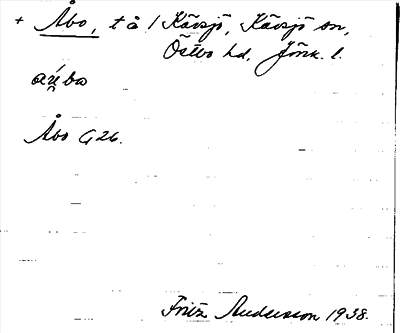 + Åbo, t å / Kävsjö, Kävsjö sn,
Östbo hd, Jönk. l.
Åbo G 26.
Fritz Andersson 1938.